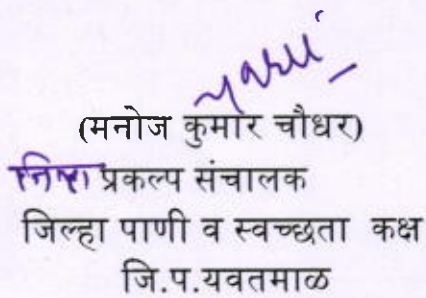 (मनोज कुमार चौधर)
प्रकल्प संचालक
जिल्हा पाणी व स्वच्छता कक्ष
जि.प.यवतमाळ